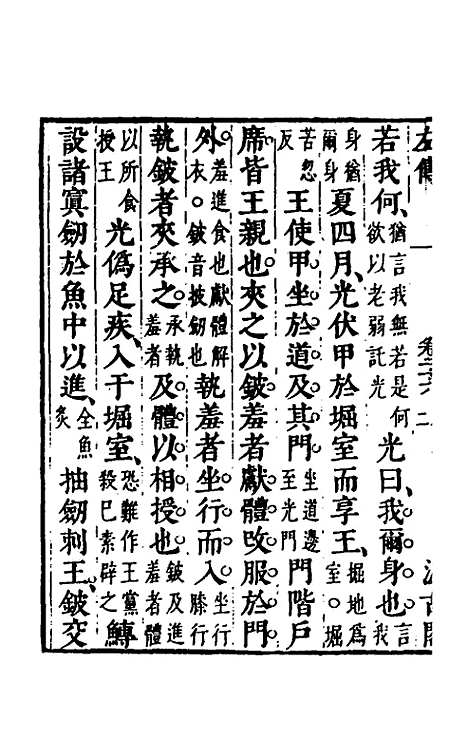 左傳 卷二六 二 汲古閣
若我何、猶言我無若是何欲以老弱託光光曰、我爾身也言我
身猶爾身夏四月、光伏甲於堀室而享王、掘地為室○堀
苦忽反王使甲坐於道及其門坐道邊至光門門階戶
席皆王親也夾之以鈹羞者獻體改服於門
外羞進食也獻體解衣○鈹音披劒也執羞者坐行而入坐行膝行
執鈹者夾承之承執羞者及體以相授也鈹及進羞者體
以所食授王光偽足疾、入于堀室、恐難作王黨殺巳素辟之鱄
設諸寘劒於魚中以進、全魚炙抽劒刺王、鈹交